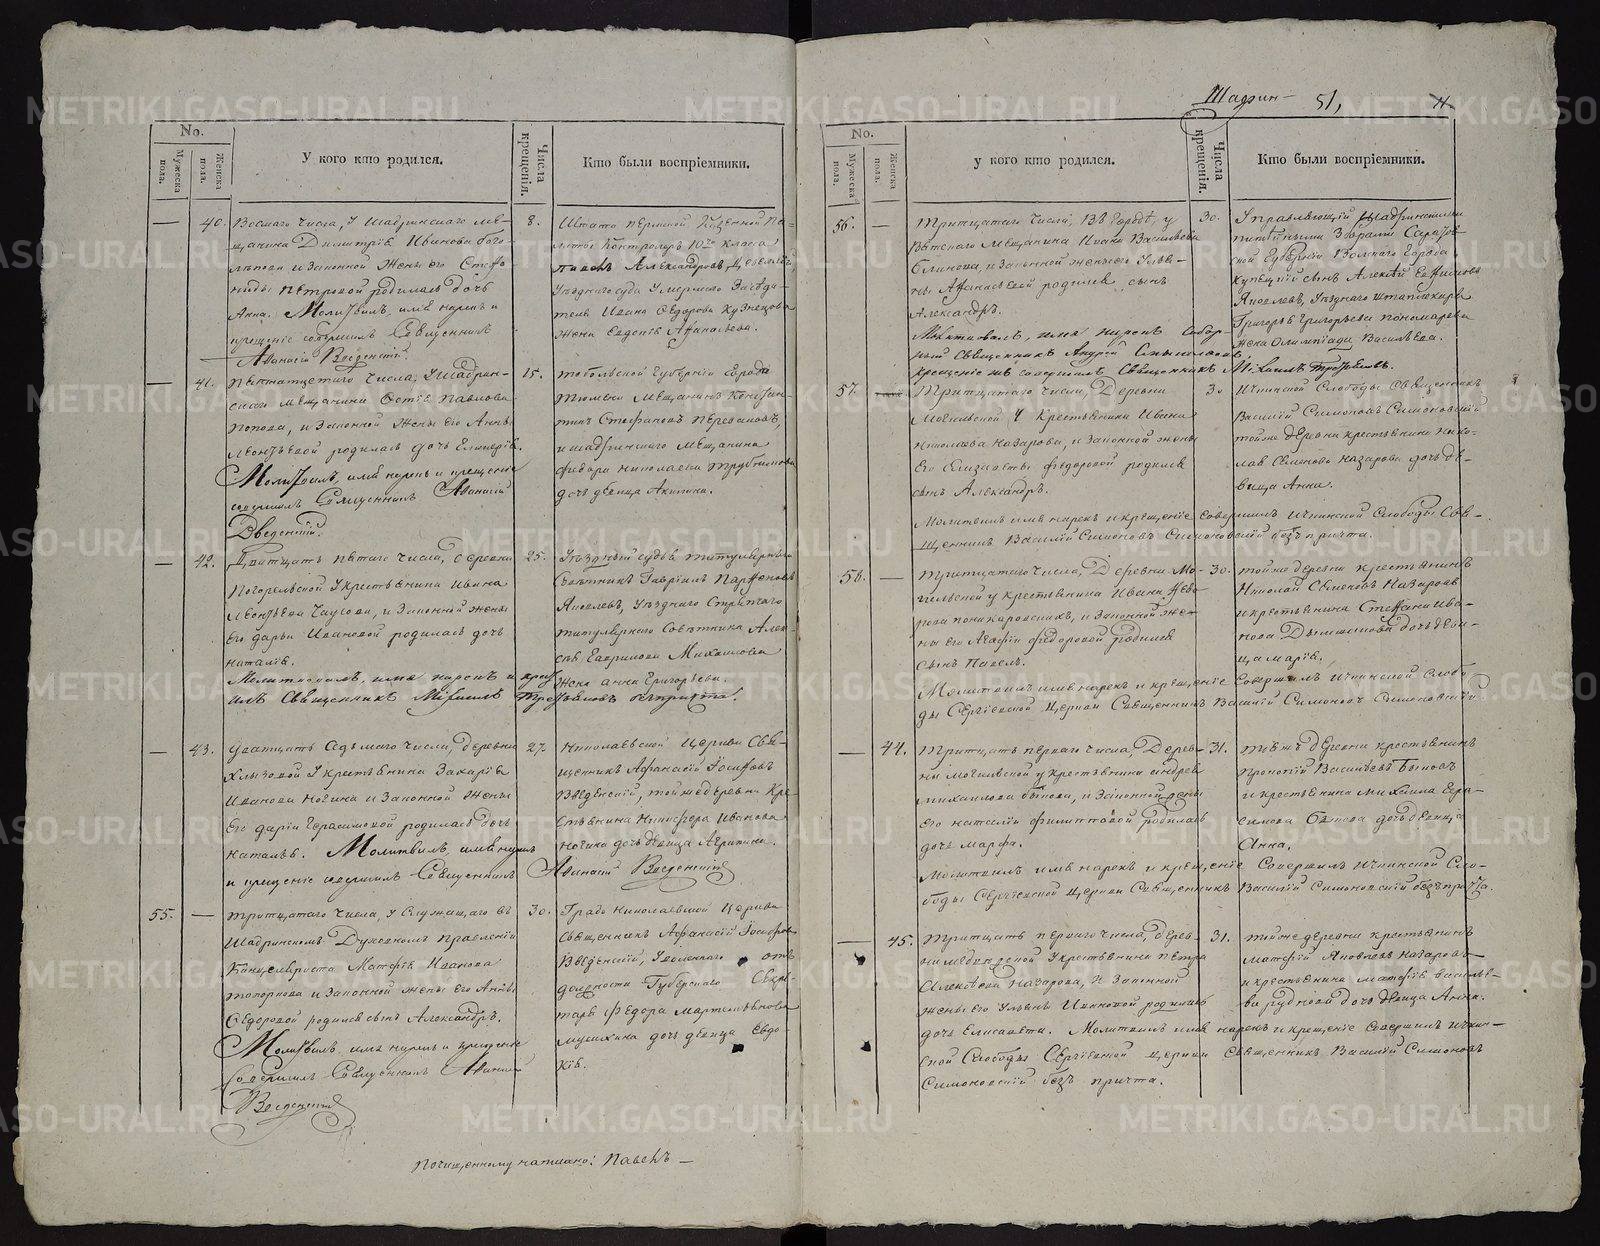 Шадрин— 51,
No.
Мужеска пола.
Женска пола.
У кого кто родился.
Числа крещенія.
Кто были воспріемники.
40. Восмаго числа, у Шадринскаго ме-
щанина Димитрія Иванова
и законной жены его Стефа-
ниды Петровой родилась дочь
Анна. Молитвилъ, имя нарекъ и
крещеніе совершилъ Священникъ
Афанасій Введенскій.
8.
Штата пермской Казенной Па-
латы Контролеръ 10го класса
Павелъ Александровъ
Уѣзднаго суда умершаго Засѣда-
теля Ивана Ѳедорова Кузнецова
жена Евдокія Афанасьева.
41. Пятнатцетаго числа, у Шадрин-
скаго мещанина Фотія Павлова
Попова, и законной жены его Анны
Леонтьевой родилась дочь
Молитвилъ, имя нарекъ и крещеніе
совершилъ Священникъ Афанасій
Введенскій.
15.
Тобольской Губерніи города
Тюмени мещанинъ Констан-
тинъ Стефановъ
и шадринскаго мещанина
Федора Николаева Трубникова
дочь дѣвица Акилина.
42. Дватцать пятаго числа, деревни
Погорельской у крестьянина Ивана
Леонтьева и законной жены
его Дарьи Ивановой родилась дочь
Наталія.
Молитвовалъ, имя нарекъ и крес
илъ Священникъ Михаилъ без причта.
25.
Уѣздный судья титулярный
Совѣтникъ Гавріилъ Парфеновъ
Яковлевъ, уѣзднаго Стряпчаго
титулярнаго Совѣтника Алек-
сѣя Гаврилова Михайлова
жена Анна Григорьева.
43. Дватцать седьмаго числа, деревни
Хлызовой у крестьянина Захарія
Иванова Ночина и законной жены
его Дарьи Герасимовой родилась дочь
Наталья. Молитвилъ, имя нарекъ
и крещеніе совершилъ Священникъ Афанасій Введенскій
27
Николаевской церкви Свя-
щенникъ Афанасій Іосифовъ
Введенскій, той же деревни Кре-
стьянина Никифора Иванова
Ночина дочь дѣвица Агрипина.
55. Тритцатаго числа, у служащаго въ
Шадринскомъ Духовномъ Правленіи
Канцеляриста Матфія Иванова
Топоркова и законной жены его Анны
Ѳедоровой родился сынъ Александръ.
Молитвилъ, имя нарекъ и крещеніе
совершилъ Священникъ Афанасій
Введенскій
30.
Градо Николаевской Церкви
Священникъ Афанасій Іосифовъ
Введенскій, Уволеннаго отъ
должности Губернскаго Секре-
таря Федора Мартемьянова
Мушкина дочь дѣвица Евдо-
кія.
Почищенному написано: Павелъ —
No.
Мужеска пола.
Женска пола.
у кого кто родился.
Числа крещенія.
Кто были воспріемники.
56. Тритцатаго числа, въ городѣ, у
Вятскаго Мещанина Ивана Васильева
Блинова, и законной жены его Улья-
ны Афанасьевой родился сынъ
Александръ.
Молитвовалъ, имя нарекъ собор-
ный священникъ Андрей
крещеніе же совершилъ Священникъ Михаилъ
30.
Управляющій Шадринскими
питейными Зборами Саратов-
ской Губерніи Вольска города
Купецкій сынъ Алексѣй
Яковлевъ, Уѣзднаго штаплекаря
Григорья Григорьева Пономарева
жена Олимпіада Васильева.
57. Тритцатаго числа, Деревни
Могильской у крестьянина Ивана
Николаева Назарова, и законной жены
его Елизаветы Федоровой родился
сынъ Александръ.
Молитвилъ имя нарекъ и крещеніе совершилъ Ичкинской Слободы Свя-
щенникъ Василій Симоновъ Симоновскій безъ причта.
30
Ичкинской Слободы Священникъ
Василій Симоновъ Симоновскій
той же деревни крестьянина Нико-
лая Семенова Назарова дочь дѣ-
вица Анна.
58. Тритцатаго числа, Деревни Мо-
гильской у крестьянина Ивана
и законной же-
ны его Агафіи Федоровой родился
сынъ Павелъ.
Молитвилъ имя нарекъ и крещеніе совершилъ Ичкинской Слобо-
ды Сергіевской церкви Священникъ Василій Симоновъ Симоновскій
30.
той же деревни крестьянинъ
Николай Семеновъ Назаровъ
и крестьянина Стефана Ива-
нова дочь дѣви-
ца Марія.
44. Тритцать перваго числа, Дерев-
ни Могильской у крестьянина Андрея
Михайлова Быкова, и законной жены
его Наталіи Филипповой родилась
дочь Марфа.
Молитвилъ имя нарекъ и крещеніе совершилъ Ичкинской Сло-
боды Сергіевской церкви Священникъ Василій Симоновскій безъ причта.
31.
тѣя деревни крестьянинъ
Прокопій Васильевъ Быковъ
и крестьянина Михаила Гера-
симова Быкова дочь дѣвица
Анна.
45. Тритцать перваго числа, дерев-
ни у крестьянина Петра
Алексѣева Назарова, и законной
жены его Ульяны Ивановой родилась
дочь Елисавета. Молитвилъ имя нарекъ и крещеніе совершилъ Ичкин-
ской Слободы Сергіевской церкви Священникъ Василій Симоновъ
Симоновскій безъ причта.
31.
той же деревни крестьянинъ
Матфій Яковлевъ Назаровъ
и крестьянина Матфія Василье-
ва дочь дѣвица Анна.
METRIKI.GASO-URAL.RU